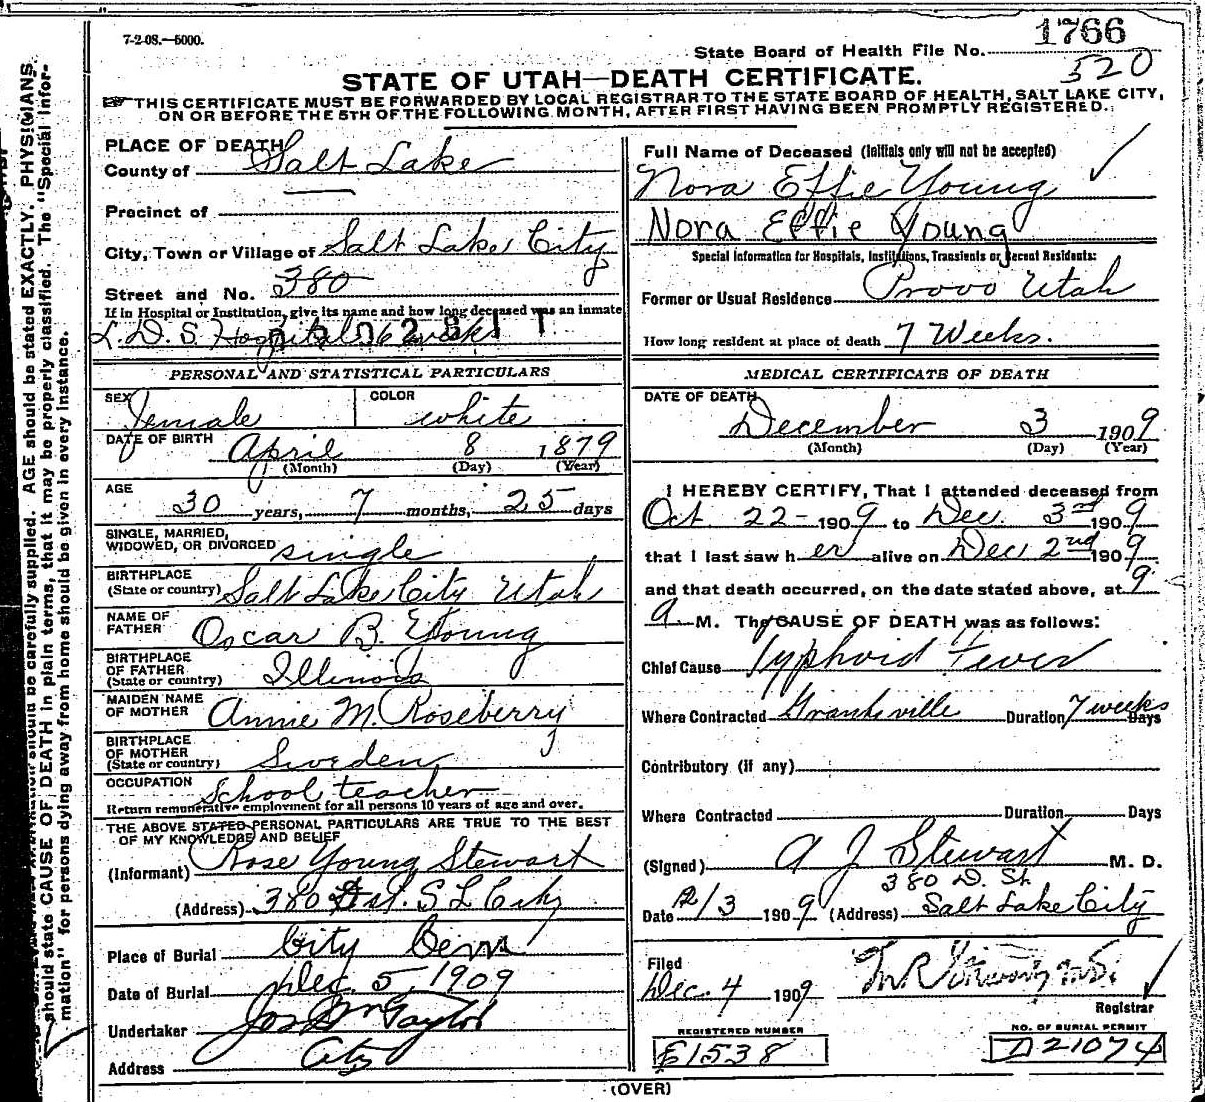 7-2-08.—5000.
State Board of Health File No. 1766
520
STATE OF UTAH—DEATH CERTIFICATE.
THIS CERTIFICATE MUST BE FORWARDED BY LOCAL REGISTRAR TO THE STATE BOARD OF HEALTH, SALT LAKE CITY,
ON OR BEFORE THE 5TH OF THE FOLLOWING MONTH, AFTER FIRST HAVING BEEN PROMPTLY REGISTERED.
PLACE OF DEATH
County of Salt Lake
Precinct of
City, Town or Village of Salt Lake City
Street and No. 380
If in Hospital or Institution, give its name and how long deceased was an inmate
L. D. S. Hospital 6 weeks
PERSONAL AND STATISTICAL PARTICULARS
SEX Female COLOR white
DATE OF BIRTH April 8 1879
(Month) (Day) (Year)
AGE
30 years, 7 months, 25 days
SINGLE, MARRIED,
WIDOWED, OR DIVORCED single
BIRTHPLACE
(State or country) Salt Lake City Utah
NAME OF
FATHER Oscar B. Young
BIRTHPLACE
OF FATHER
(State or country) Illinois
MAIDEN NAME
OF MOTHER Annie M. Roseberry
BIRTHPLACE
OF MOTHER
(State or country) Sweden
OCCUPATION School teacher
Return remunerative employment for all persons 10 years of age and over.
THE ABOVE STATED PERSONAL PARTICULARS ARE TRUE TO THE BEST
OF MY KNOWLEDGE AND BELIEF
(Informant) Rose Young Stewart
(Address) 380 D St. S L City
Place of Burial City Cem
Date of Burial Dec. 5, 1909
Undertaker Jos Wm Taylor
Address City
Full Name of Deceased (Initials only will not be accepted)
Nora Effie Young
Nora Effie Young
Special Information for Hospitals, Institutions, Transients or Recent Residents:
Former or Usual Residence Provo Utah
How long resident at place of death 7 Weeks.
MEDICAL CERTIFICATE OF DEATH
DATE OF DEATH
December 3 1909
(Month) (Day) (Year)
I HEREBY CERTIFY, That I attended deceased from
Oct 22 - 1909 to Dec. 3rd 1909
that I last saw her alive on Dec 2nd 1909
and that death occurred, on the date stated above, at 9
a M. The CAUSE OF DEATH was as follows:
Chief Cause Typhoid Fever
Where Contracted Grantsville Duration 7 weeks Days
Contributory (if any)
Where Contracted Duration Days
(Signed) A J Stewart M. D.
380 D. St.
Date 12/3 1909 (Address) Salt Lake City
Filed
Dec. 4 1909
Registrar
REGISTERED NUMBER
E1538
NO. OF BURIAL PERMIT
D21074
(OVER)
should be carefully supplied. AGE should be stated EXACTLY. PHYSICIANS
should state CAUSE OF DEATH in plain terms, that it may be properly classified. The "Special Infor-
mation" for persons dying away from home should be given in every instance.